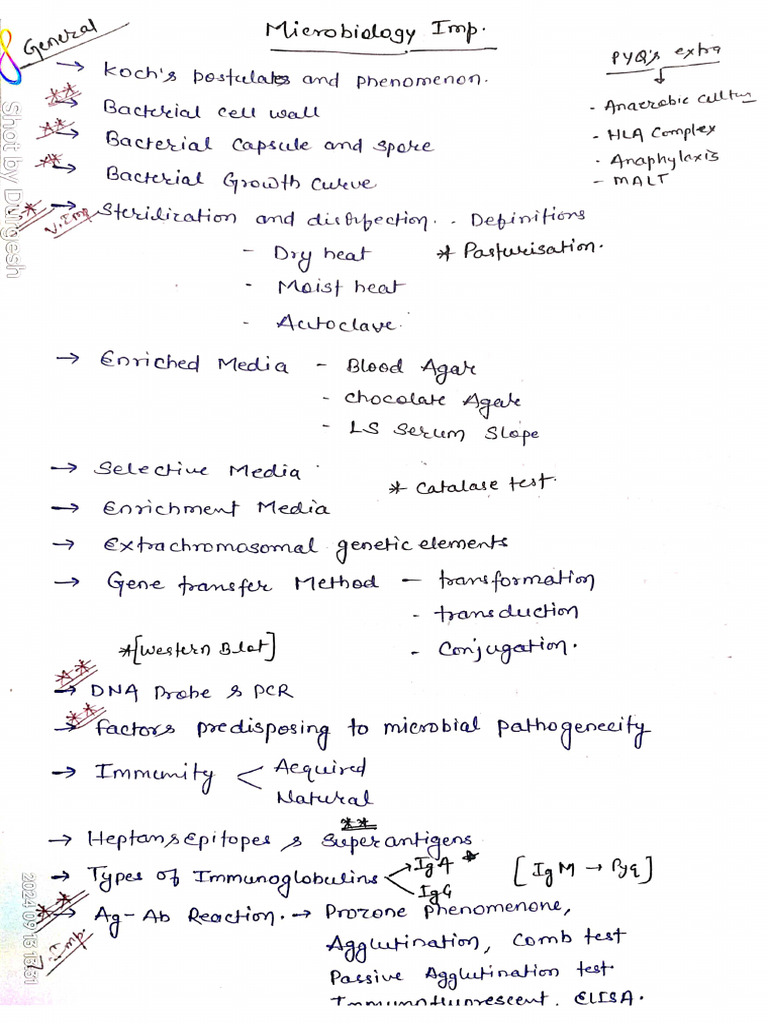 Microbiology Imp.
General
PYQ's extra
→ Koch's postulates and phenomenon.
- Anaerobic cultur
** → Bacterial cell wall
- HLA Complex
** → Bacterial Capsule and spore
- Anaphylaxis
** → Bacterial Growth Curve
- MALT
V. Imp → Sterilization and disinfection. - Definitions
- Dry heat * Pasturisation.
- Moist heat
- Autoclave.
→ Enriched Media - Blood Agar
- chocolate Agar
- LS serum slope
→ Selective Media
* Catalase test.
→ Enrichment Media
→ Extrachromasomal genetic elements
→ Gene transfer Method - transformation
- transduction
*[Western Blot] - Conjugation.
** → DNA Probe & PCR
** → factors predisposing to microbial pathogenecity
→ Immunity < Acquired
Natural
**
→ Heptans, Epitopes & Superantigens
→ Types of Immunoglobulins IgA * [IgM → Pyq]
IgG
** → Ag-Ab Reaction. → Prozone phenomenone,
V. Imp.
Agglutination, Comb test
Passive Agglutination test
Immunofluorescent. ELISA.
Shot by Durgesh